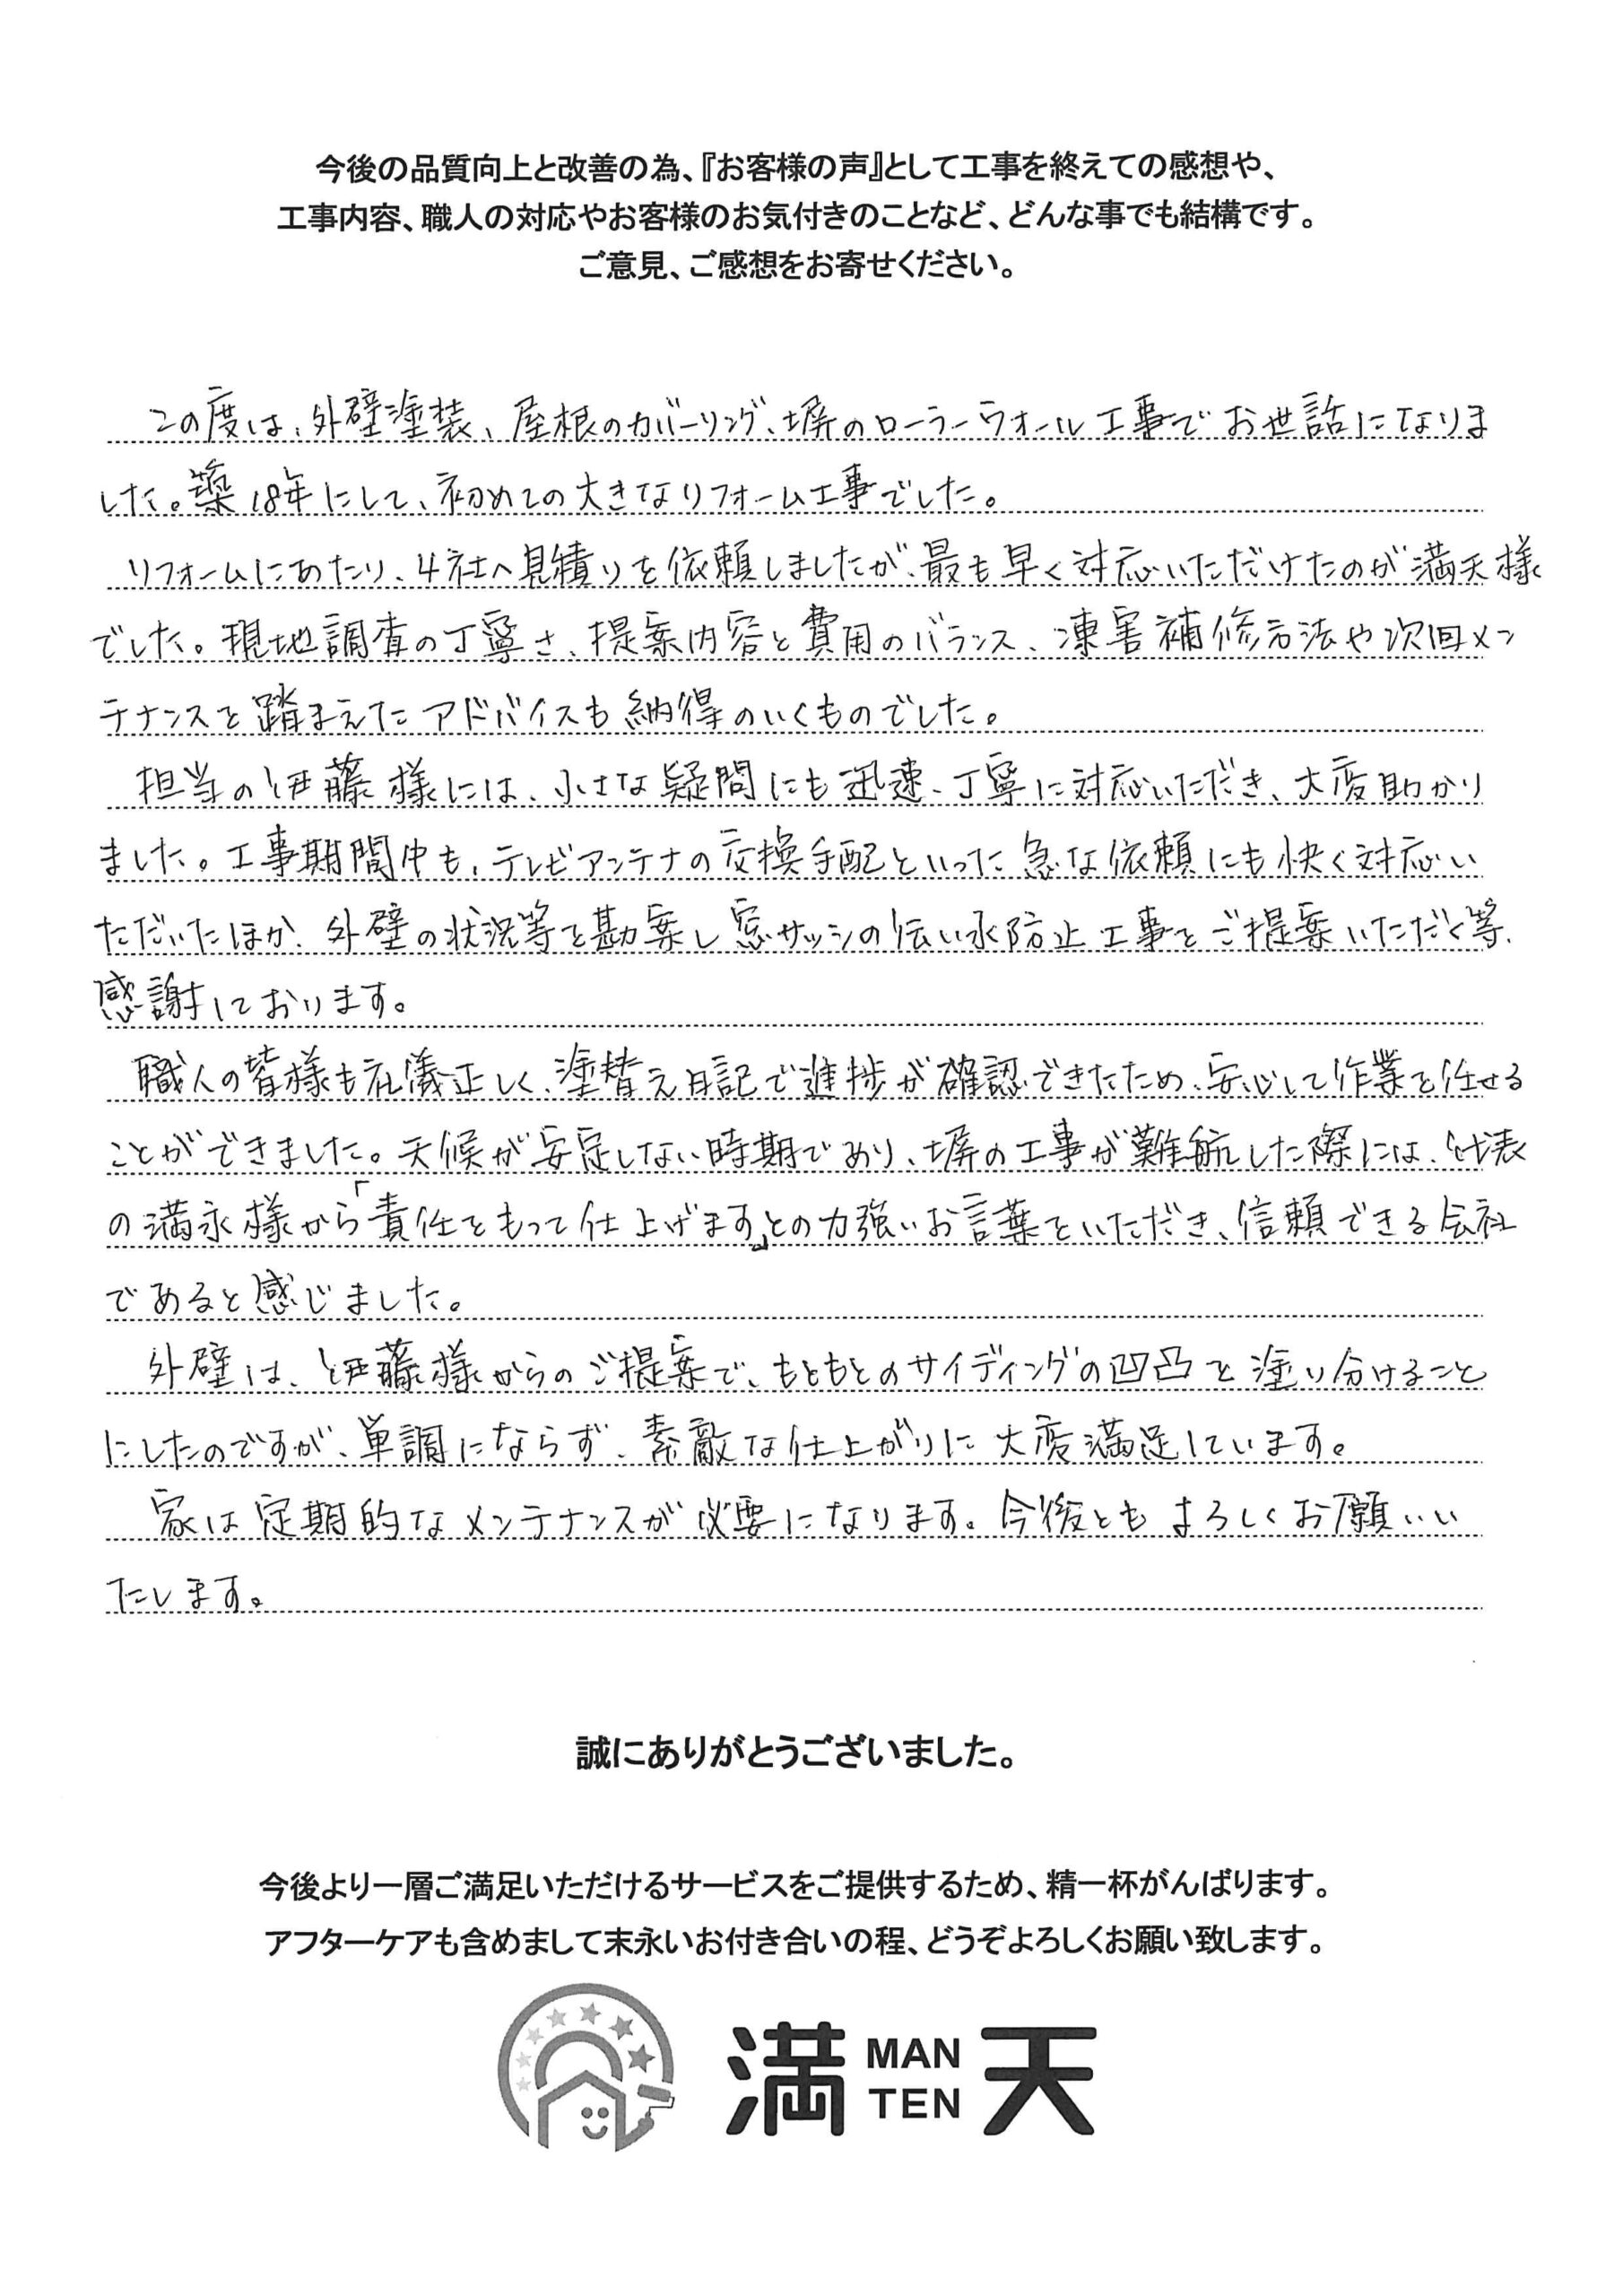 今後の品質向上と改善の為、『お客様の声』として工事を終えての感想や、
工事内容、職人の対応やお客様のお気付きのことなど、どんな事でも結構です。
ご意見、ご感想をお寄せください。
この度は、外壁塗装、屋根のカバーリング、塀のローラーウォール工事でお世話になりま
した。築18年にして、初めての大きなリフォーム工事でした。
リフォームにあたり、4社へ見積りを依頼しましたが、最も早く対応いただけたのが満天様
でした。現地調査の丁寧さ、提案内容と費用のバランス、凍害補修方法や次回メン
テナンスを踏まえたアドバイスも納得のいくものでした。
担当の伊藤様には、小さな疑問にも迅速、丁寧に対応いただき、大変助かり
ました。工事期間中も、テレビアンテナの交換手配といった急な依頼にも快く対応い
ただいたほか、外壁の状況等を勘案し窓サッシの伝い水防止工事をご提案いただく等、
感謝しております。
職人の皆様も礼儀正しく、塗替え日記で進捗が確認できたため、安心して作業を任せる
ことができました。天候が安定しない時期であり、塀の工事が難航した際には、代表
の満永様から「責任をもって仕上げます」との力強いお言葉をいただき、信頼できる会社
であると感じました。
外壁は、伊藤様からのご提案で、もともとのサイディングの凹凸を塗り分けること
にしたのですが、単調にならず、素敵な仕上がりに大変満足しています。
家は定期的なメンテナンスが必要になります。今後ともよろしくお願いい
たします。
誠にありがとうございました。
今後より一層ご満足いただけるサービスをご提供するため、精一杯がんばります。
アフターケアも含めまして末永いお付き合いの程、どうぞよろしくお願い致します。
満 MAN TEN 天